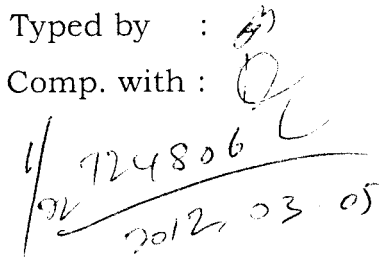 Typed by :
Comp. with :
724806
2012, 03. 05